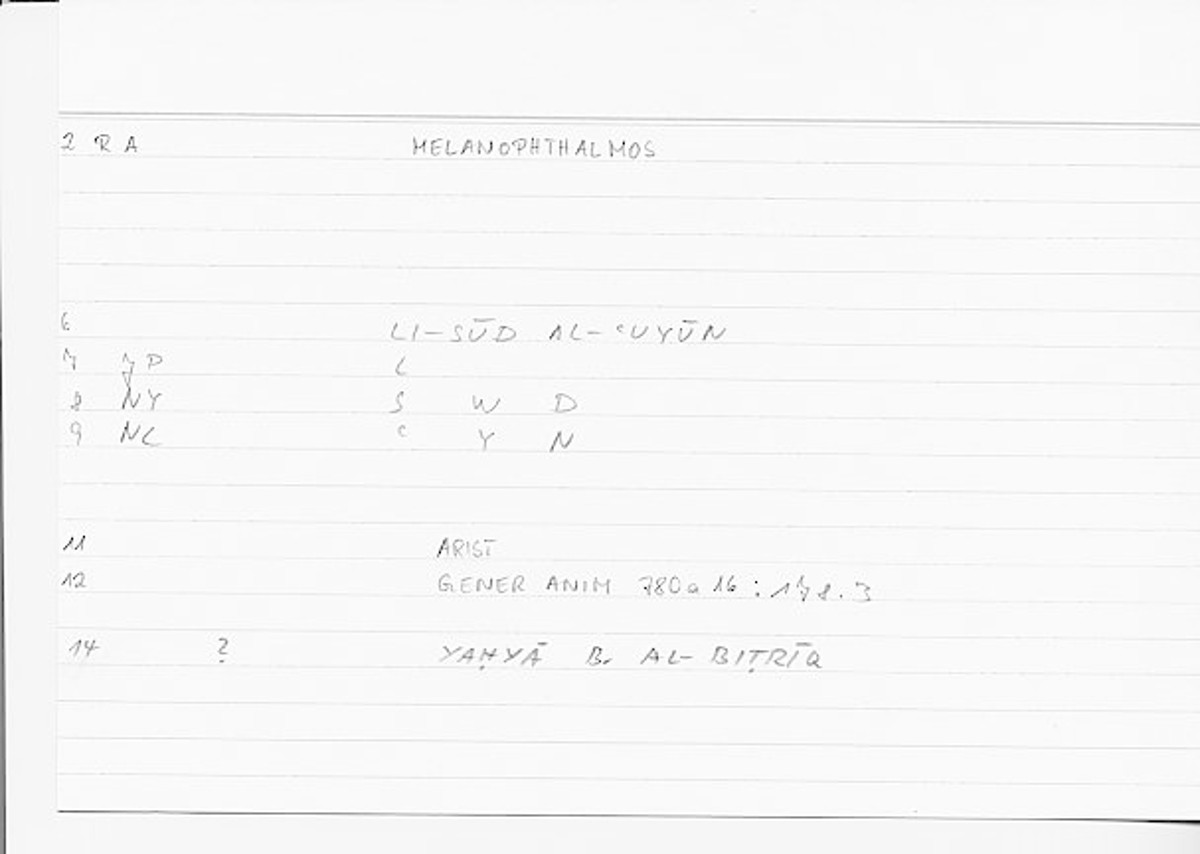 2 R A MELANOPHTHALMOS
6 LI-SŪD AL-ʿUYŪN
7 7P L
8 NY S W D
9 NL ʿ Y N
11 ARIST
12 GENER ANIM 780a16 : 178.3
14 ? YAḤYĀ B. AL-BIṬRĪQ